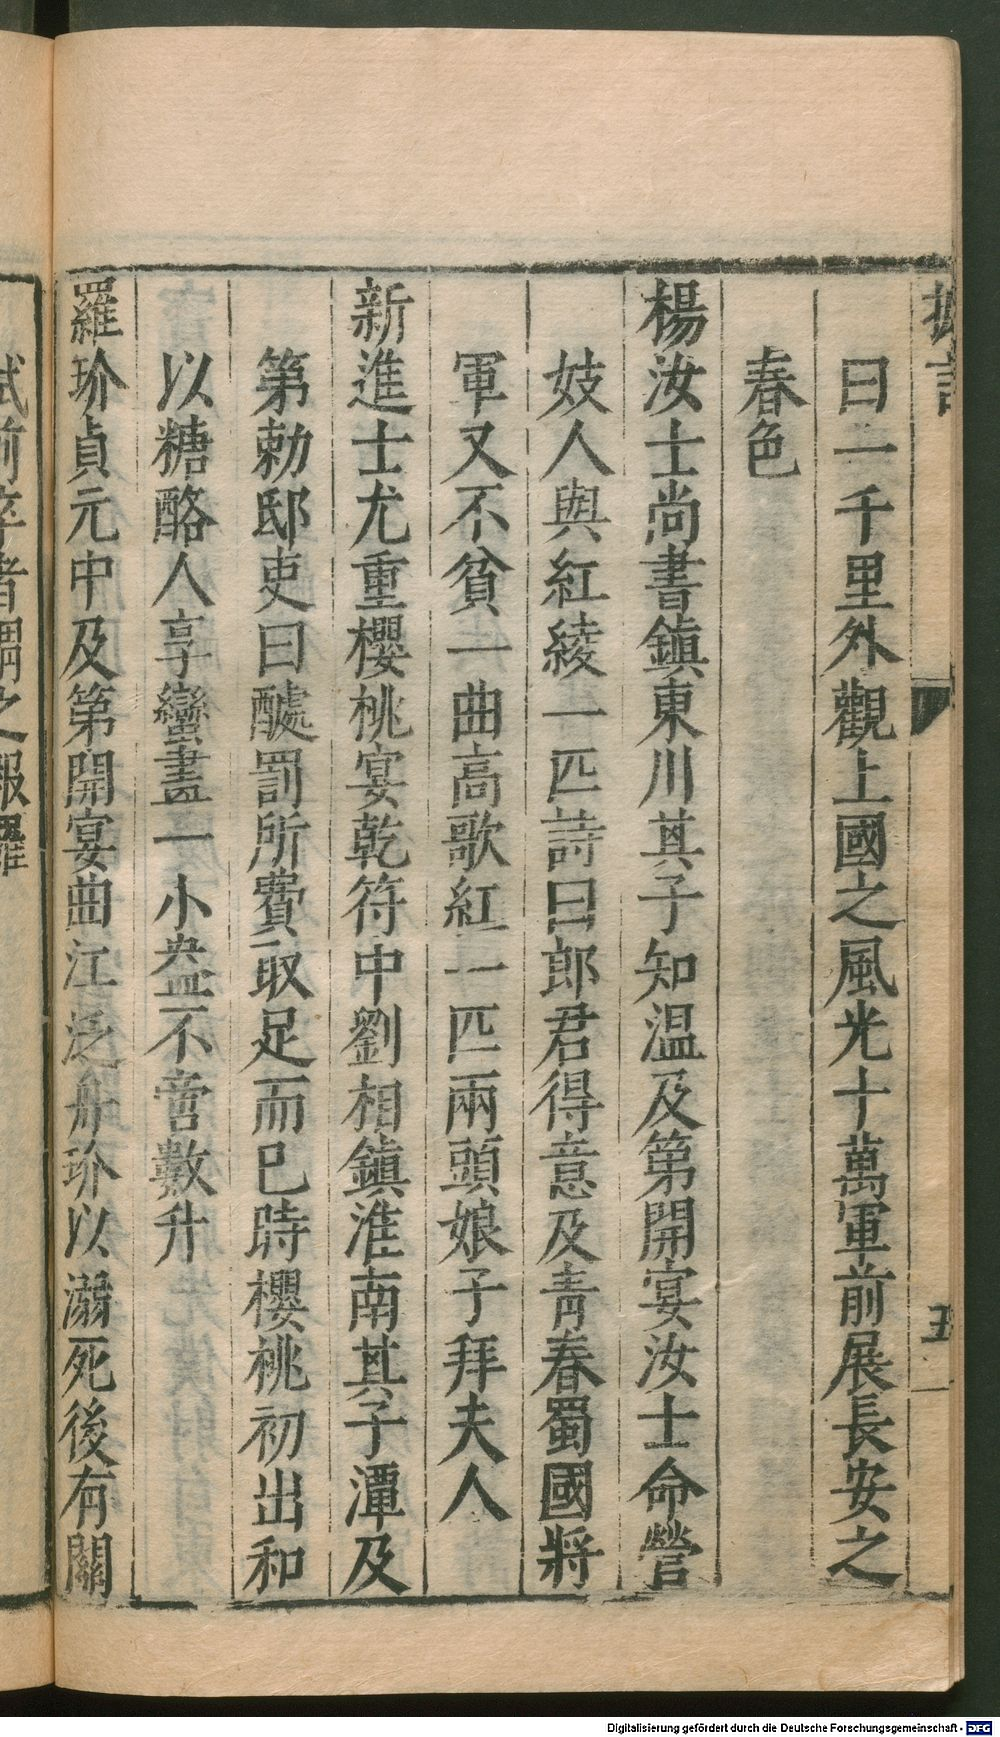 摭言
五
曰一千里外觀上國之風光十萬軍前展長安之
春色
楊汝士尚書鎮東川其子知温及第開宴汝士命營
妓人與紅綾一匹詩曰郎君得意及青春蜀國將
軍又不貧一曲高歌紅一匹兩頭娘子拜夫人
新進士尤重櫻桃宴乾符中劉相鎮淮南其子潭及
第勅邸吏曰醵罰所費取足而已時櫻桃初出和
以糖酪人享蠻畫一小盎不啻數升
羅玠貞元中及第開宴曲江泛舟玠以溺死後有關
試前卒者謂之報羅
Digitalisierung gefördert durch die Deutsche Forschungsgemeinschaft - DFG